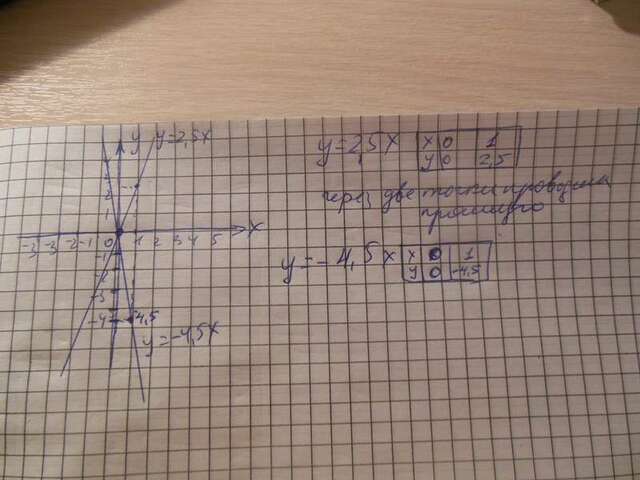 y
y=2,5x
2
1
-3 -3 -2 -1 0 1 2 3 4 5 x
-1
-2
-3
-4 4,5
y=-4,5x
y=2,5x x 0 1
y 0 2,5
через две точки проводим
прямую
y=-4,5x x 0 1
y 0 -4,5